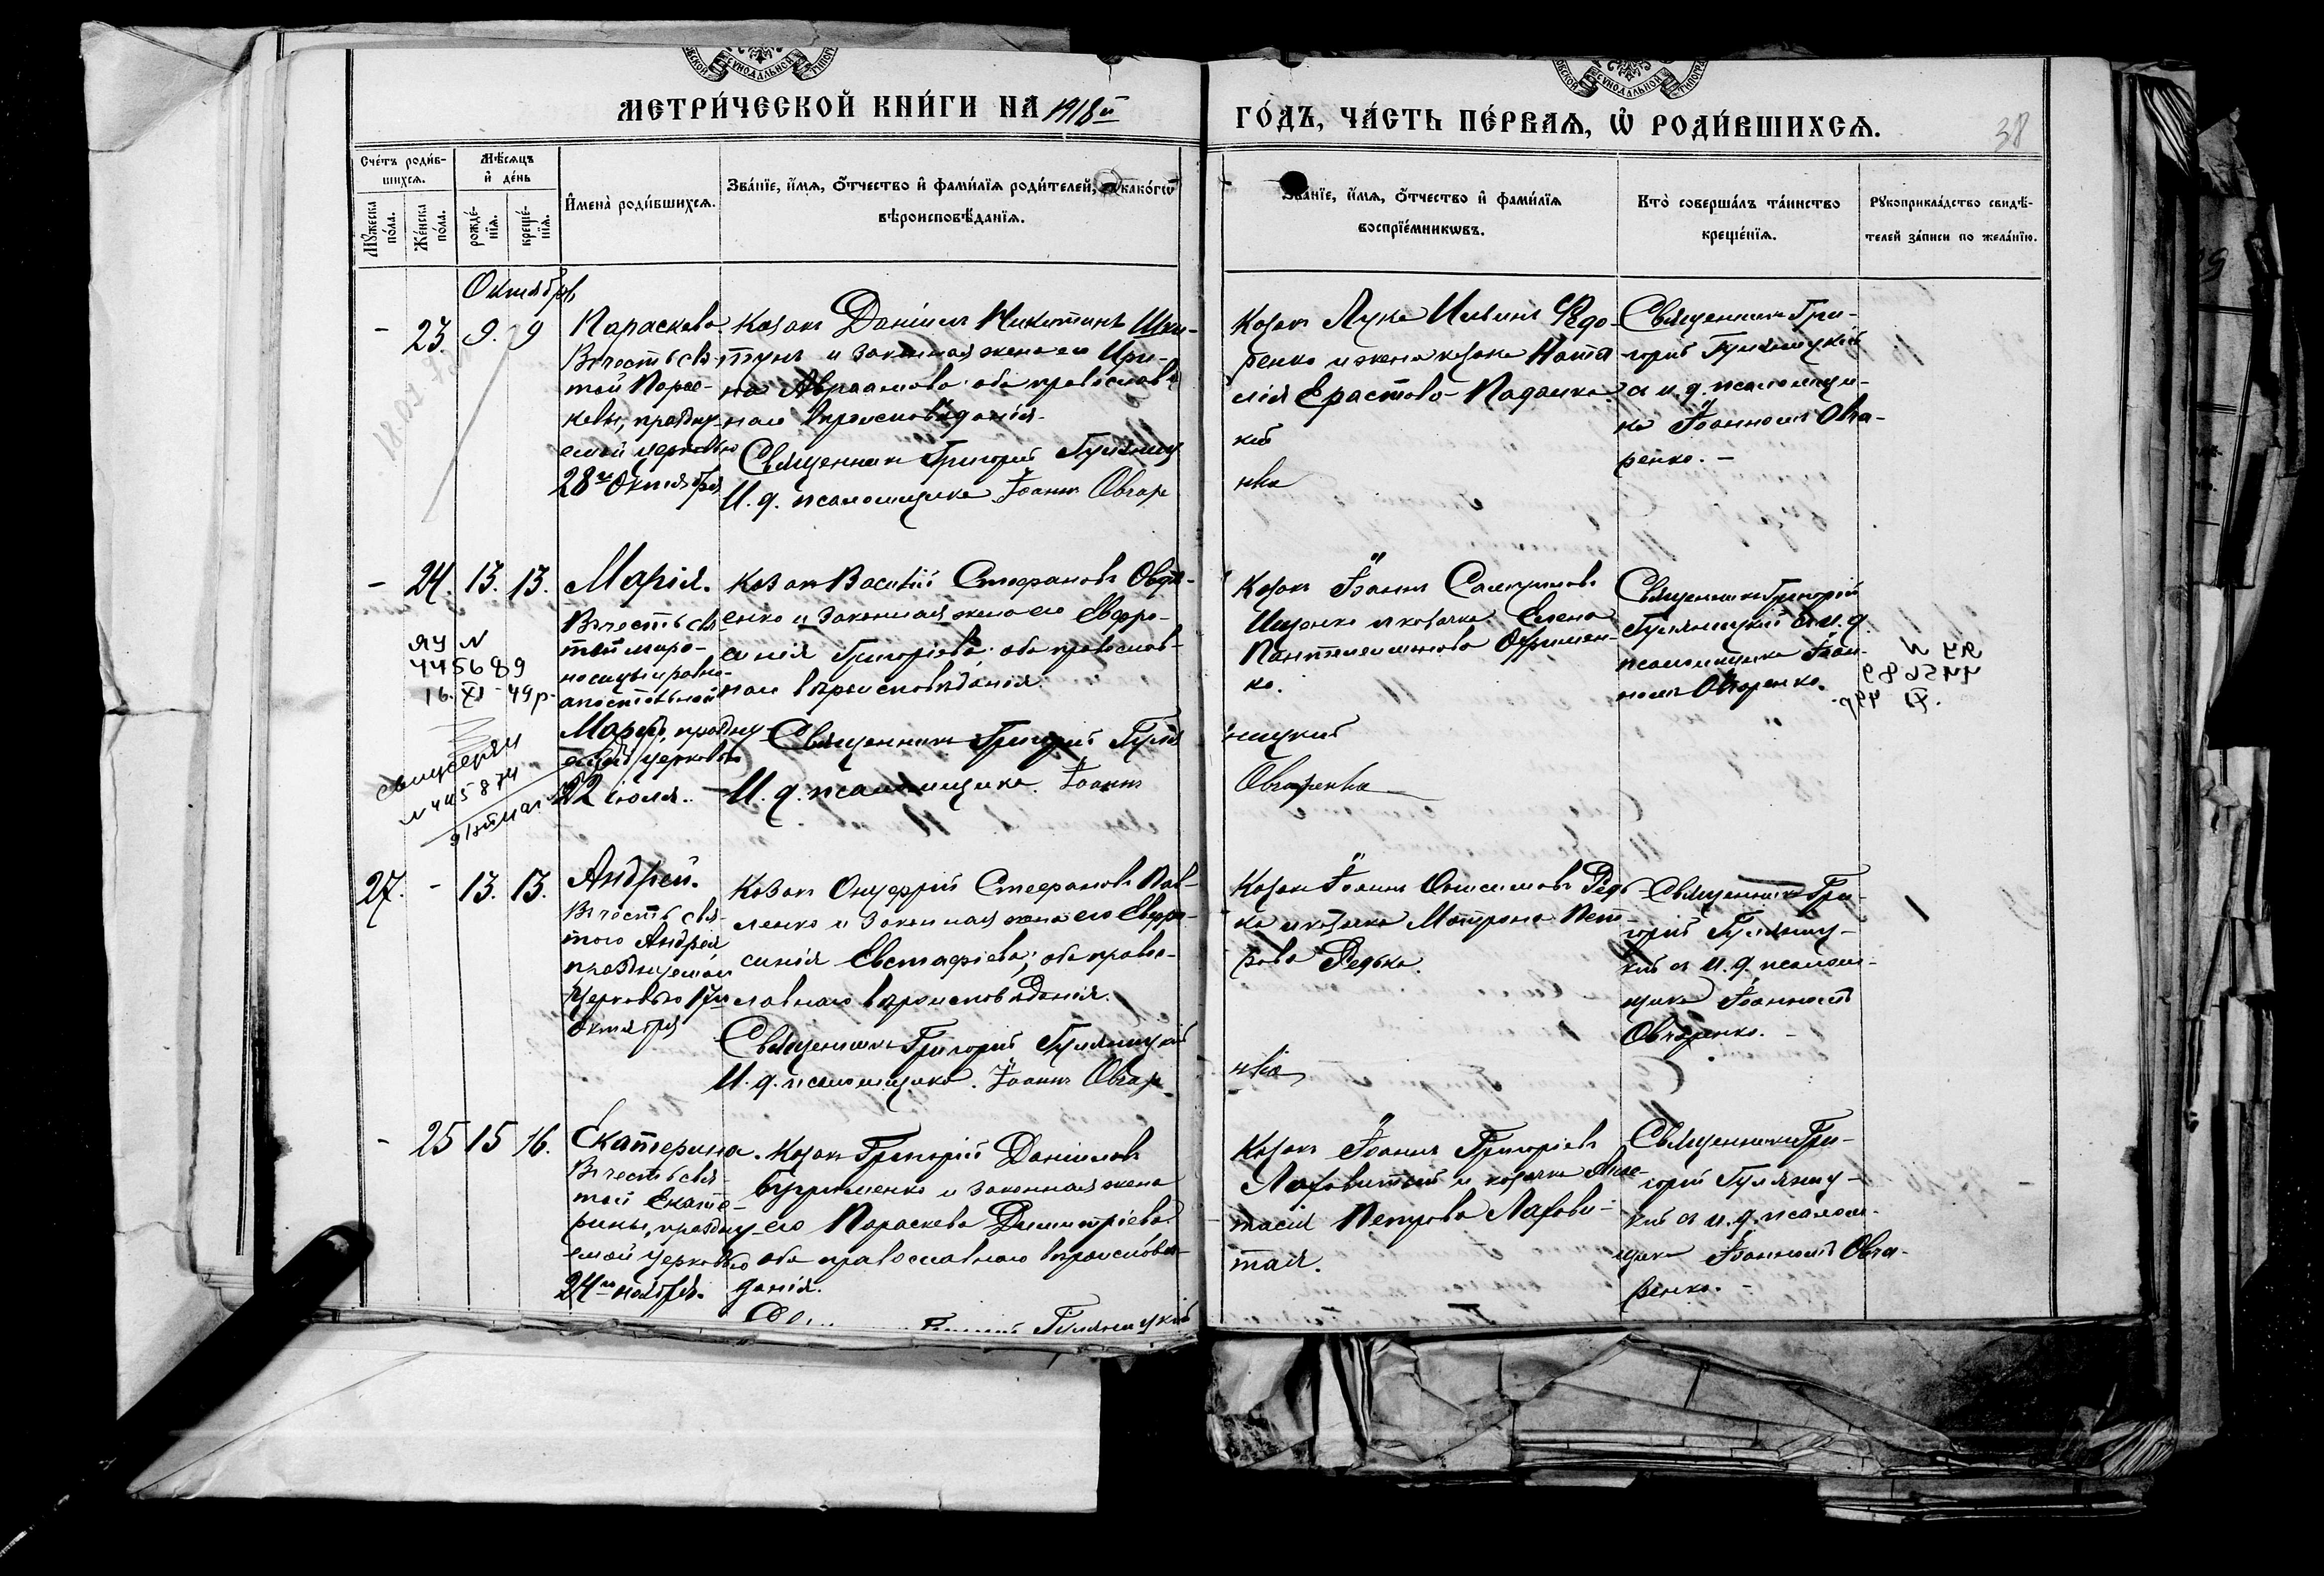 МЕТРИ́ЧЕСКОЙ КНИ́ГИ НА 1918й
ГО́ДЪ, ЧА́СТЬ ПЕ́РВАѦ, Ѡ҆ РОДИ́ВШИХСѦ.
38
Сче́тъ роди́в-
шихсѧ.
Мѣ́сѧцъ
и҆ де́нь
Мꙋ́жеска по́ла.
Же́нска по́ла.
рожде́-
нїѧ.
креще́-
нїѧ.
И҆мена̀ роди́вшихсѧ.
Зва́нїе, и҆́мѧ, ѻ҆́тчество и҆ фами́лїѧ роди́телей, и҆ како́гѡ
вѣроисповѣ́данїѧ.
Зва́нїе, и҆́мѧ, ѻ҆́тчество и҆ фами́лїѧ
воспрїе́мникѡвъ.
Кто̀ соверша́лъ та́инство
креще́нїѧ.
Рꙋкоприкла́дство свидѣ́-
телей за́писи по жела́нїю.
Октябрь
- 23. 9. 9
Параскева
Въ честь свя-
той Парас-
кевы, праздну-
емой церковью
28го Октября
Козакъ Даніилъ Никитинъ
и законная жена его Ири-
на Авраамова оба православ-
наго вѣроисповѣданія.
Священникъ Григорій Гуляниц
И. д. псаломщика Іоаннъ Овчар
Козакъ Лука Ильинъ Ѳедо-
ренко и жена козака Ната
лія Ерастова Падалка.
кій
нко
Священникъ Гри-
горій Гуляницкій
съ и. д. псаломщи-
ка Іоанномъ Овча-
ренко. -
- 24. 13. 13.
Марія.
Въ честь свя-
той миро-
носицы и равно-
апостольной
Маріи, праздну-
емой церковью
22 іюля.
Козакъ Василій Стефановъ Овдi-
енко и законная жена его Евфро-
синія Григоріева, оба православ-
наго вѣроисповѣданія.
Священникъ Григорій Гуля
И. д. псаломщика Іоаннъ
ЯУ N
445689
16. XI - 49р.
N 445874
Козакъ Іоаннъ
Ищенко и козачка Елена
Пантелеимонова Ефримен-
ко.
ницкій
Овчаренко
Священникъ Григорій
Гуляницкій съ и. д.
псаломщика Іоан-
номъ Овчаренко.
27. - 13. 13.
Андрей.
Въ честь свя-
того Андрея
празднуемаго
Церковью 17го
Октября
Козакъ Онуфрій Стефановъ Пав-
ленко и законная жена его Евфро-
синія Евстафіева, оба право-
славнаго вѣроисповѣданія.
Священникъ Григорій Гуляницкій
И. д. псаломщика Іоаннъ Овчар
Козакъ Іоаннъ Онисимовъ Редь-
ка и козачка Матрона Пет-
рова Редька.
нко
Священникъ Гри-
горій Гуляниц-
кій съ и. д. псалом-
щика Іоанномъ
Овчаренко. -
- 25 15 16.
Екатерина.
Въ честь свя-
той Екате-
рины, праздну-
емой церковью
24го ноября.
Козакъ Григорій Даніиловъ
Ефрименко и законная жена
его Параскева Димитріева
оба православнаго вѣроисповѣ-
данія.
Гуляницкій
Козакъ Іоаннъ Григоріевъ
Лазовитый и козачка Анас-
тасія Петрова Лазови-
тая.
Священникъ Гри-
горій Гуляниц-
кій съ и. д. псалом-
щика Іоанномъ Овча-
ренко. -